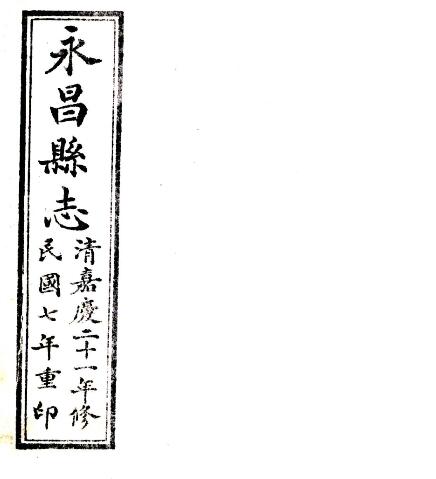 永昌縣志
清嘉慶二十一年修
民國七年重印